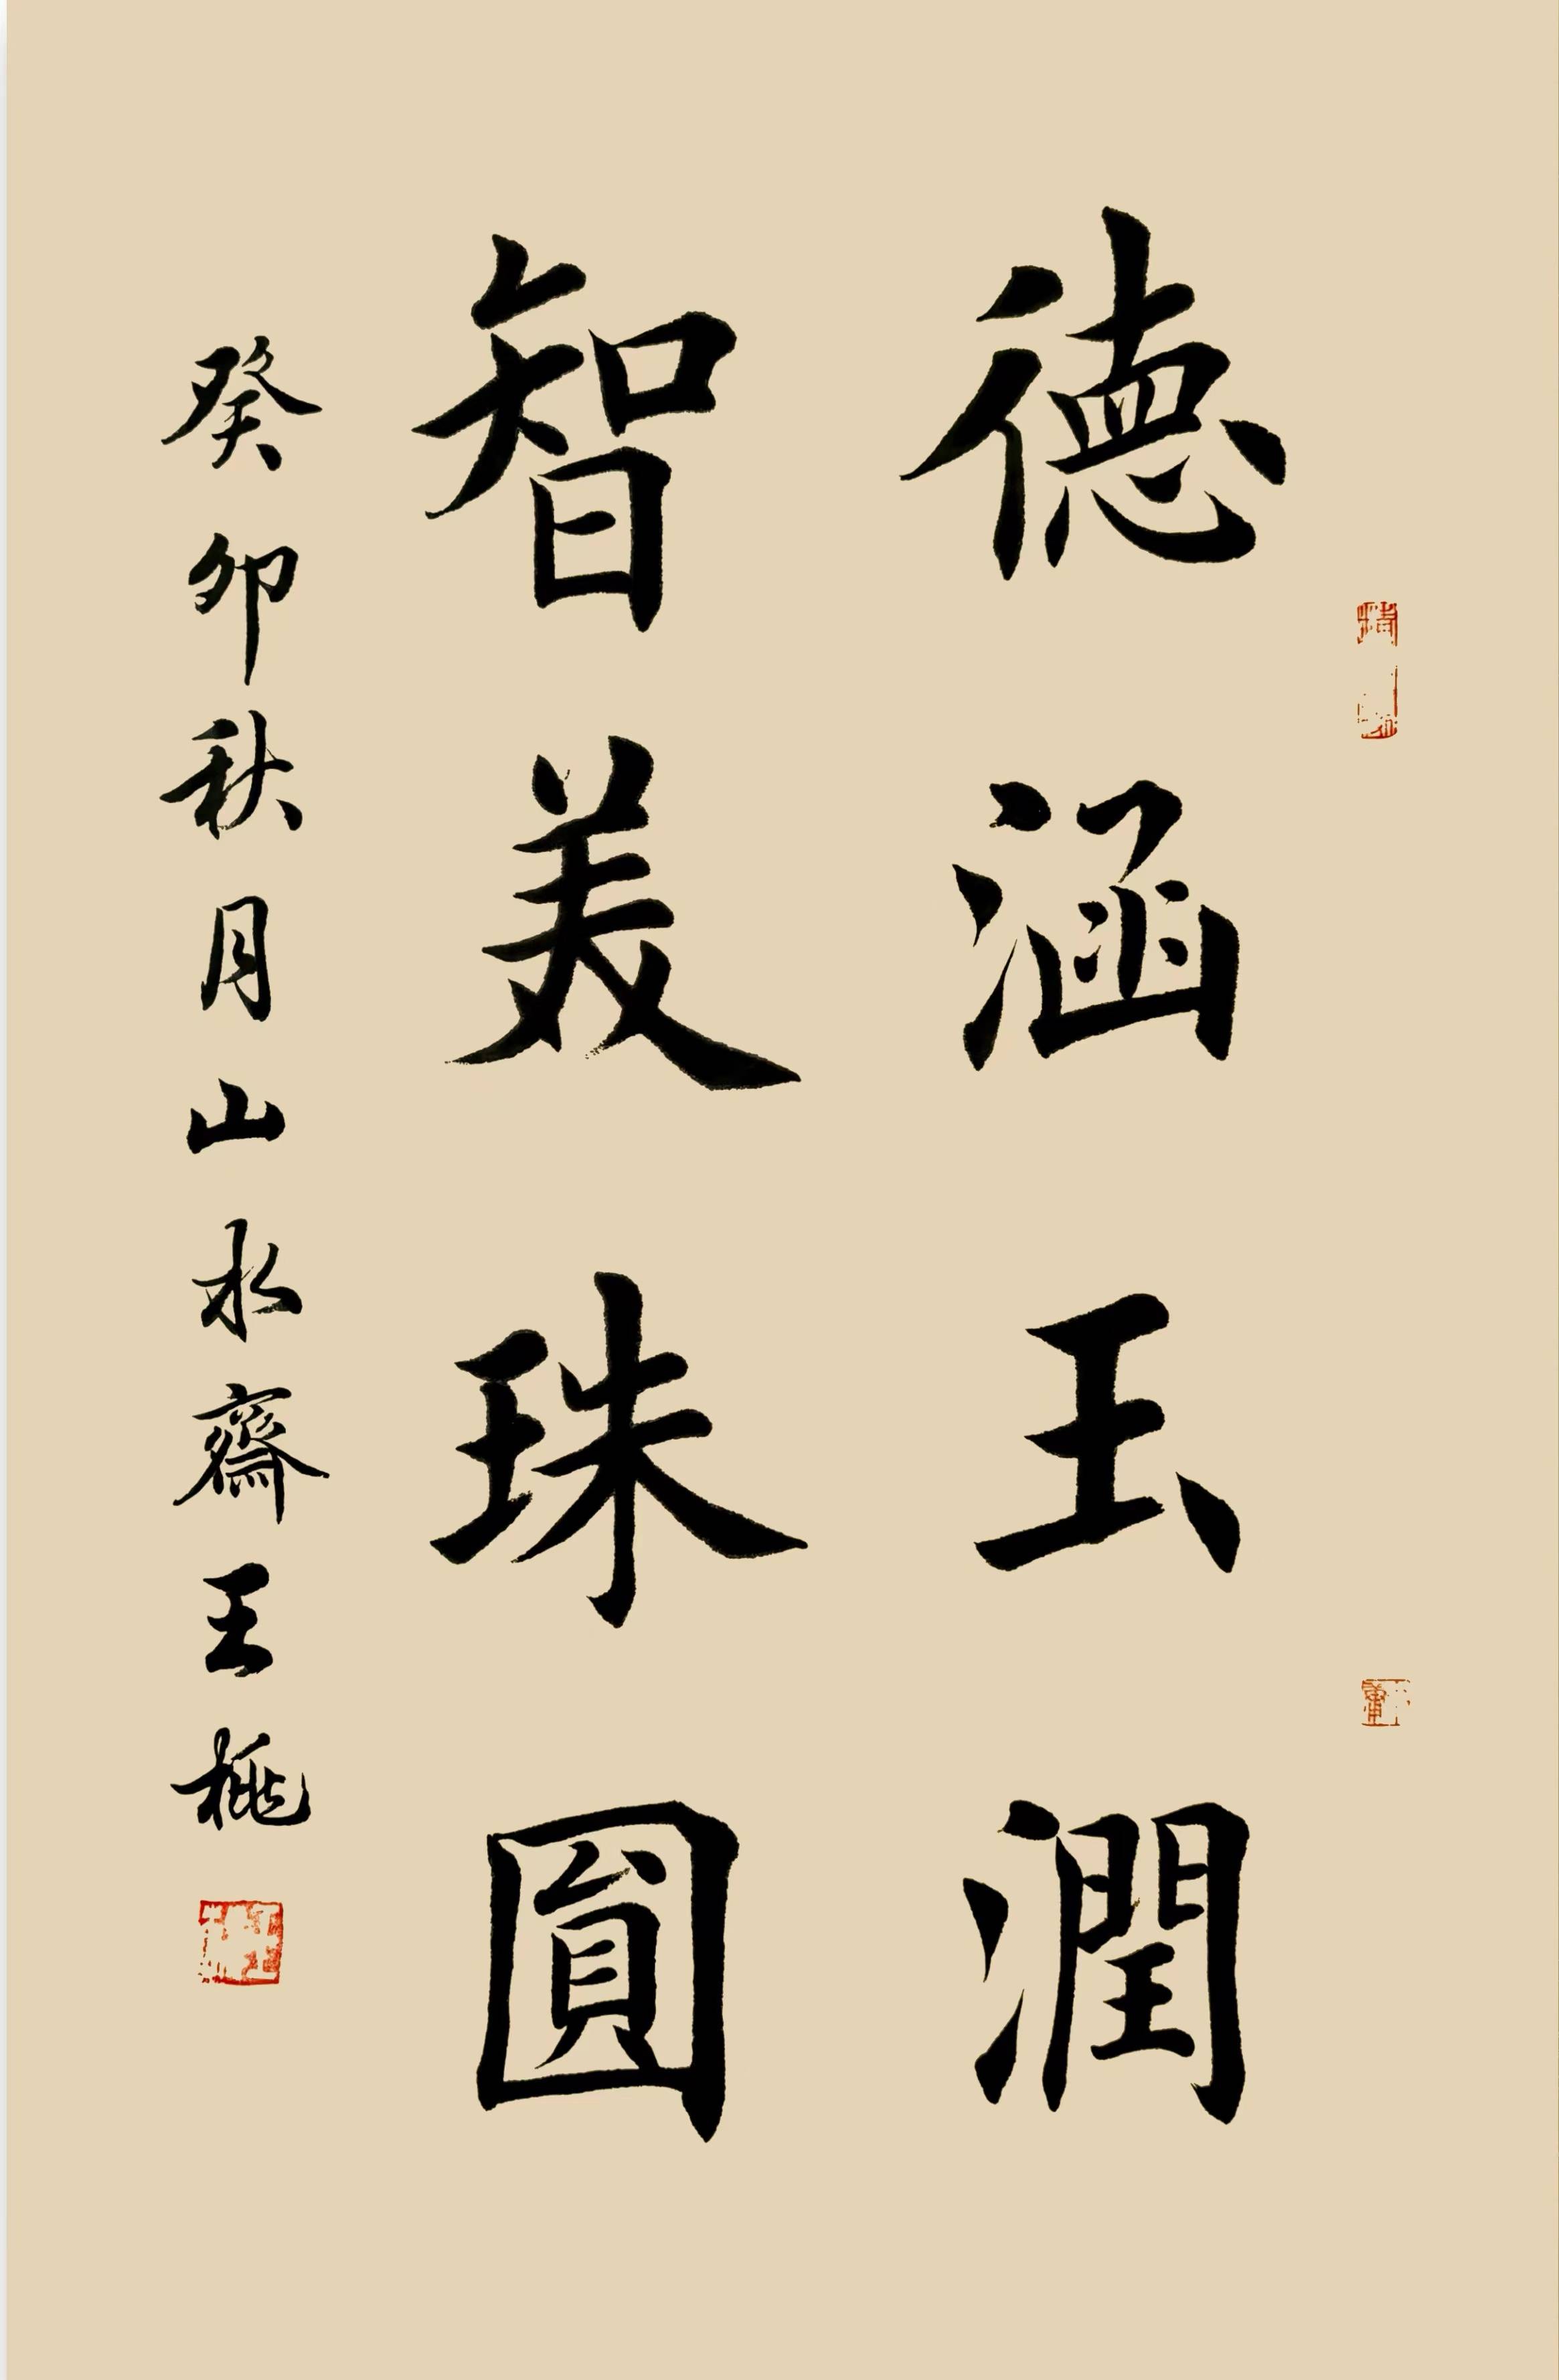 德涵玉潤
智美珠圓
癸卯秋月山水齋王桃